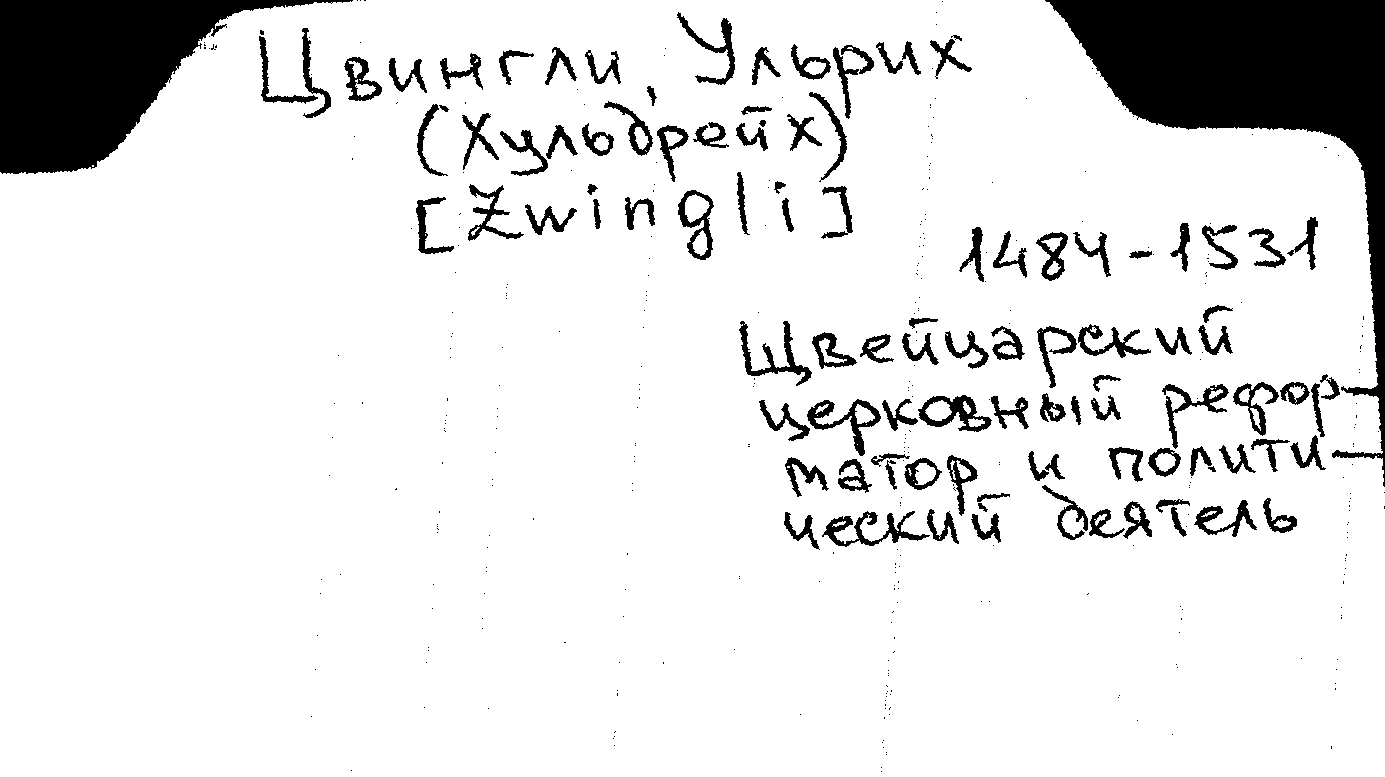 Цвингли, Ульрих
(Хульдрейх)
[Zwingli]
1484-1531
Швейцарский
церковный рефор-
матор и полити-
ческий деятель